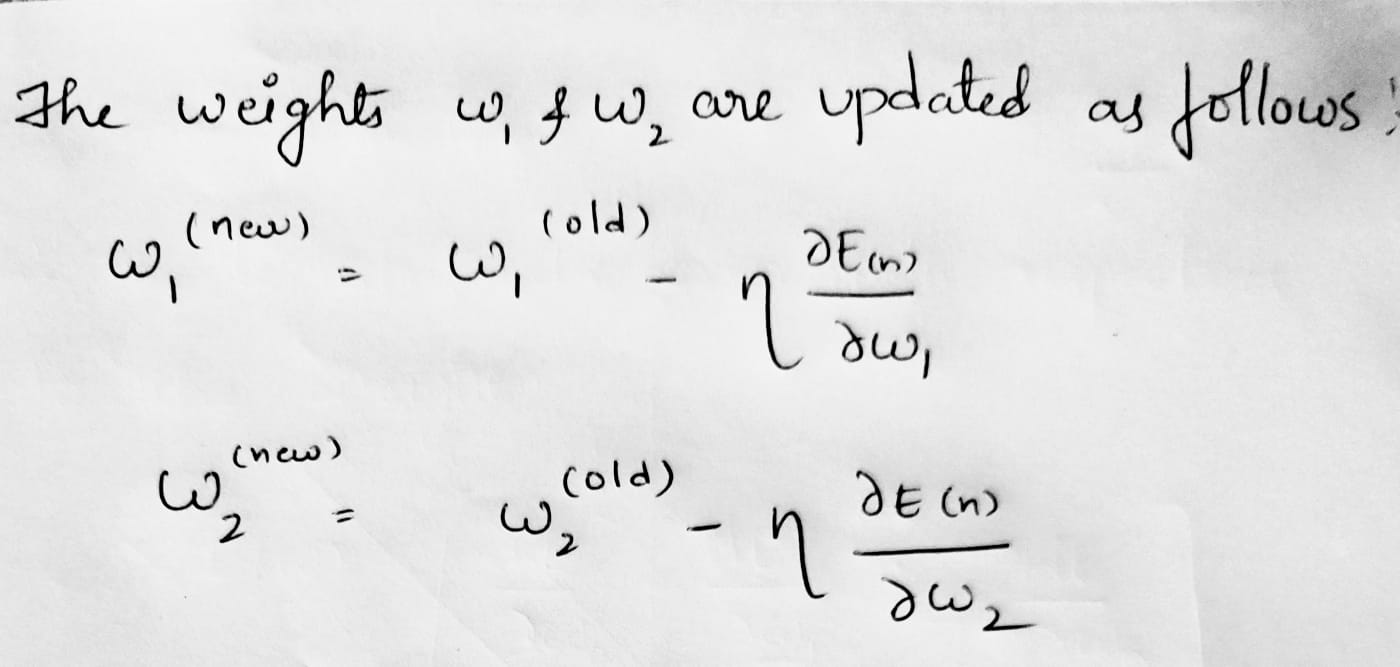 The weights ω₁ & ω₂ are updated as follows:
ω₁⁽ⁿᵉʷ⁾ = ω₁⁽ᵒˡᵈ⁾ - η ∂E(n)/∂ω₁
ω₂⁽ⁿᵉʷ⁾ = ω₂⁽ᵒˡᵈ⁾ - η ∂E(n)/∂ω₂